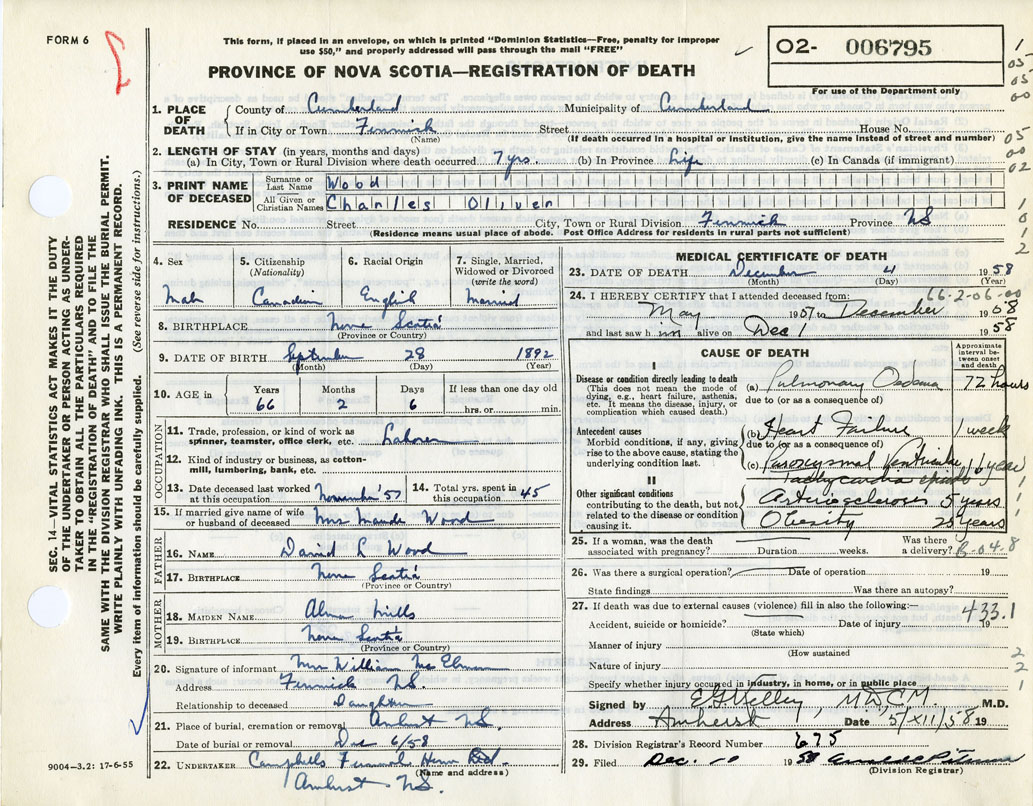 FORM 6
This form, if placed in an envelope, on which is printed "Dominion Statistics—Free, penalty for improper
use $50," and properly addressed will pass through the mail "FREE"
O2- 006795
PROVINCE OF NOVA SCOTIA—REGISTRATION OF DEATH
For use of the Department only
1. PLACE OF DEATH
County of Cumberland Municipality of Cumberland
If in City or Town Fenwick Street House No.
(Name) (If death occurred in a hospital or institution, give the name instead of street and number)
2. LENGTH OF STAY (in years, months and days)
(a) In City, Town or Rural Division where death occurred 7 yrs. (b) In Province Life (c) In Canada (if immigrant)
3. PRINT NAME OF DECEASED
Surname or Last Name Wood
All Given or Christian Names Charles Oliver
RESIDENCE No. Street City, Town or Rural Division Fenwick Province NS
(Residence means usual place of abode. Post Office Address for residents in rural parts not sufficient)
4. Sex
Male
5. Citizenship
(Nationality)
Canadian
6. Racial Origin
English
7. Single, Married,
Widowed or Divorced
(write the word)
Married
8. BIRTHPLACE Nova Scotia
(Province or Country)
9. DATE OF BIRTH September 28 1892
(Month) (Day) (Year)
10. AGE in
Years Months Days If less than one day old
66 2 6 hrs. or min.
OCCUPATION
11. Trade, profession, or kind of work as
spinner, teamster, office clerk, etc. Laborer
12. Kind of industry or business, as cotton-
mill, lumbering, bank, etc.
13. Date deceased last worked
at this occupation November '57
14. Total yrs. spent in
this occupation 45
15. If married give name of wife
or husband of deceased Mrs Maude Wood
FATHER
16. NAME Daniel L Wood
17. BIRTHPLACE Nova Scotia
(Province or Country)
MOTHER
18. MAIDEN NAME Alma Mills
19. BIRTHPLACE Nova Scotia
(Province or Country)
20. Signature of informant Mrs William
Address Fenwick NS.
Relationship to deceased Daughter
21. Place of burial, cremation or removal Amherst NS.
Date of burial or removal Dec 6/58
22. UNDERTAKER Campbells Funeral Home Ltd
(Name and address)
Amherst NS.
9004—3.2: 17-6-55
SEC. 14—VITAL STATISTICS ACT MAKES IT THE DUTY
OF THE UNDERTAKER OR PERSON ACTING AS UNDER-
TAKER TO OBTAIN ALL THE PARTICULARS REQUIRED
IN THE "REGISTRATION OF DEATH" AND TO FILE THE
SAME WITH THE DIVISION REGISTRAR WHO SHALL ISSUE THE BURIAL PERMIT.
WRITE PLAINLY WITH UNFADING INK. THIS IS A PERMANENT RECORD.
Every item of information should be carefully supplied. (See reverse side for instructions.)
MEDICAL CERTIFICATE OF DEATH
23. DATE OF DEATH December 4 1958
(Month) (Day) (Year)
24. I HEREBY CERTIFY that I attended deceased from:
66-2-06-00
May 1957 to December 1958
and last saw him alive on Dec 1 1958
CAUSE OF DEATH
Approximate
interval be-
tween onset
and death
I
Disease or condition directly leading to death
(This does not mean the mode of
dying, e.g., heart failure, asthenia,
etc. It means the disease, injury, or
complication which caused death.)
(a) Pulmonary Oedema 72 hours
due to (or as a consequence of)
Antecedent causes
Morbid conditions, if any, giving
rise to the above cause, stating the
underlying condition last.
(b) Heart Failure 1 week
due to (or as a consequence of)
(c) Paroxysmal Ventricular
Tachycardia
II
Other significant conditions
contributing to the death, but not
related to the disease or condition
causing it.
Arteriosclerosis 5 years
Obesity 25 years
25. If a woman, was the death
associated with pregnancy? Duration weeks.
Was there
a delivery?
26. Was there a surgical operation? Date of operation 19
State findings Was there an autopsy?
27. If death was due to external causes (violence) fill in also the following:—
433.1
Accident, suicide or homicide? Date of injury 19
(State which)
Manner of injury
(How sustained
Nature of injury
Specify whether injury occurred in industry, in home, or in public place
Signed by E.G. Kelley, M.D, C.M. M.D.
Address Amherst Date 5/XII/58 19
28. Division Registrar's Record Number 675
29. Filed Dec. 1958
(Division Registrar)